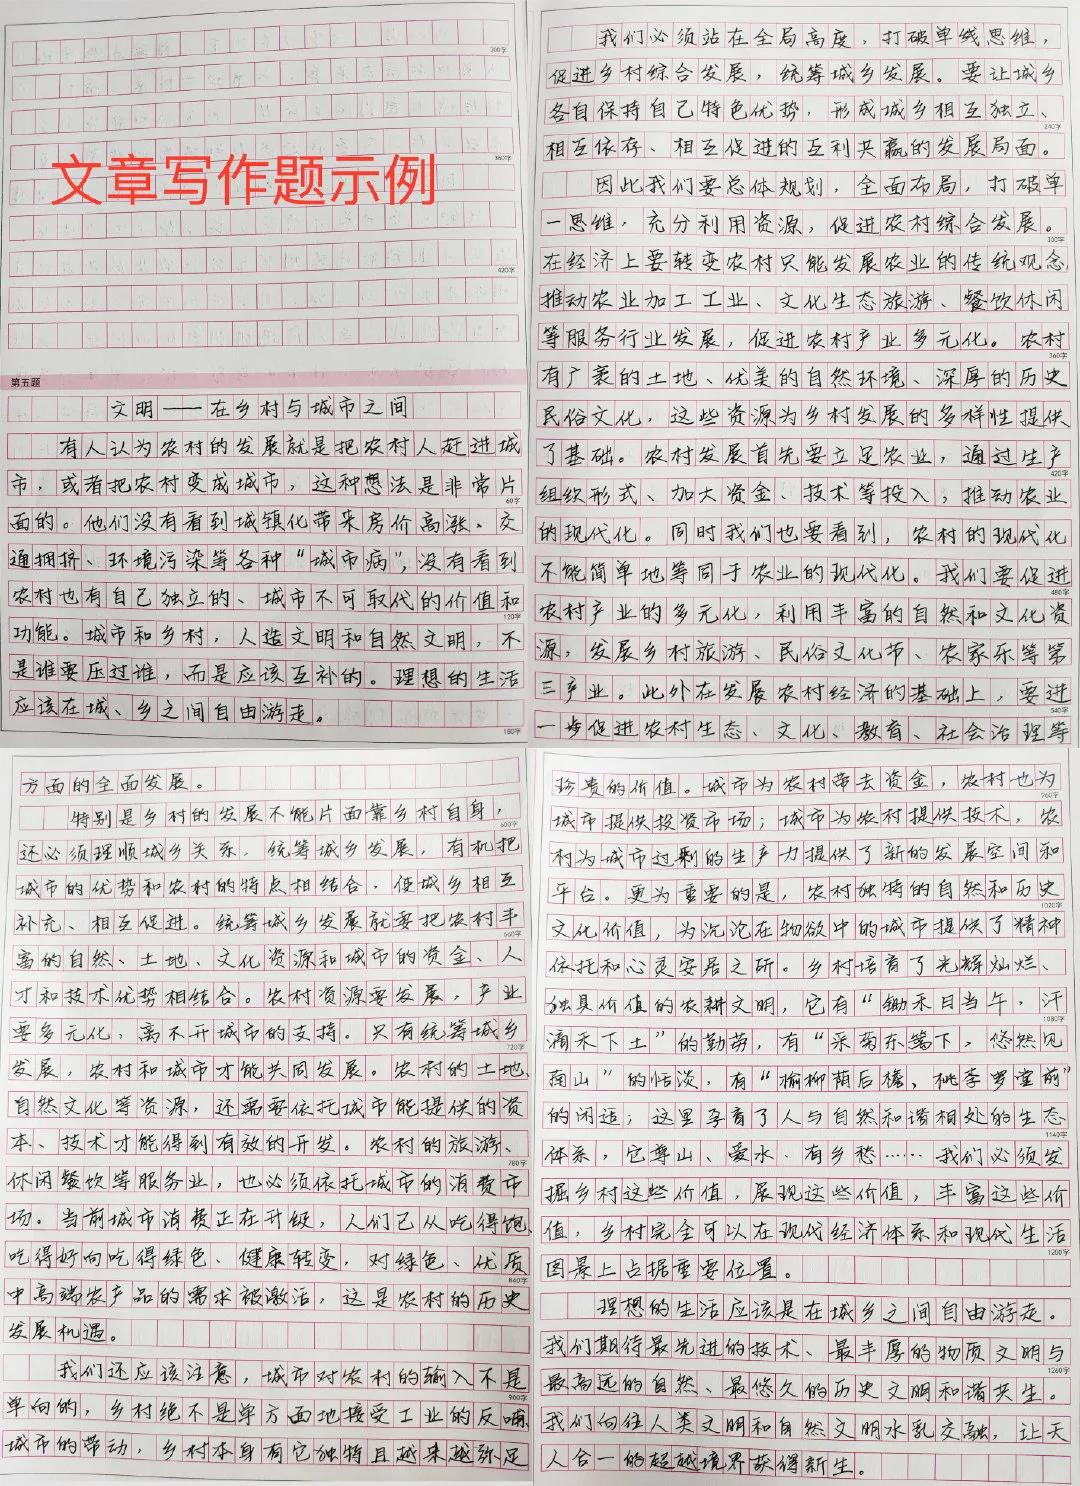 300字
360字
文章写作题示例
420字
第五题
文明——在乡村与城市之间
有人认为农村的发展就是把农村人赶进城
市，或者把农村变成城市，这种想法是非常片
60字
面的。他们没有看到城镇化带来房价高涨、交
通拥挤、环境污染等各种“城市病”，没有看到
农村也有自己独立的、城市不可取代的价值和
120字
功能。城市和乡村，人造文明和自然文明，不
是谁要压过谁，而是应该互补的。理想的生活
应该在城、乡之间自由游走。
180字
我们必须站在全局高度，打破单线思维，
促进乡村综合发展，统筹城乡发展。要让城乡
各自保持自己特色优势，形成城乡相互独立、
240字
相互依存、相互促进的互利共赢的发展局面。
因此我们要总体规划，全面布局，打破单
一思维，充分利用资源，促进农村综合发展。
300字
在经济上要转变农村只能发展农业的传统观念
推动农业加工工业、文化生态旅游、餐饮休闲
等服务行业发展，促进农村产业多元化。农村
360字
有广袤的土地、优美的自然环境、深厚的历史
民俗文化，这些资源为乡村发展的多样性提供
了基础。农村发展首先要立足农业，通过生产
420字
组织形式、加大资金、技术等投入，推动农业
的现代化。同时我们也要看到，农村的现代化
不能简单地等同于农业的现代化。我们要促进
480字
农村产业的多元化，利用丰富的自然和文化资
源，发展乡村旅游、民俗文化节、农家乐等第
三产业。此外在发展农村经济的基础上，要进
540字
一步促进农村生态、文化、教育、社会治理等
方面的全面发展。
特别是乡村的发展不能片面靠乡村自身，
600字
还必须理顺城乡关系，统筹城乡发展，有机把
城市的优势和农村的特点相结合，使城乡相互
补充、相互促进。统筹城乡发展就要把农村丰
660字
富的自然、土地、文化资源和城市的资金、人
才和技术优势相结合。农村资源要发展，产业
要多元化，离不开城市的支持。只有统筹城乡
720字
发展，农村和城市才能共同发展。农村的土地、
自然文化等资源，还需要依托城市能提供的资
本、技术才能得到有效的开发。农村的旅游、
780字
休闲餐饮等服务业，也必须依托城市的消费市
场。当前城市消费正在升级，人们已从吃得饱、
吃得好向吃得绿色、健康转变，对绿色、优质
840字
中高端农产品的需求被激活，这是农村的历史
发展机遇。
我们还应该注意，城市对农村的输入不是
900字
单向的，乡村绝不是单方面地接受工业的反哺
城市的带动，乡村本身有它独特且越来越弥足
珍贵的价值。城市为农村带去资金，农村也为
960字
城市提供投资市场；城市为农村提供技术，农
村为城市过剩的生产力提供了新的发展空间和
平台。更为重要的是，农村独特的自然和历史
1020字
文化价值，为沉沦在物欲中的城市提供了精神
依托和心灵安居之所。乡村培育了光辉灿烂、
独具价值的农耕文明，它有“锄禾日当午，汗
1080字
滴禾下土”的勤劳，有“采菊东篱下，悠然见
南山”的恬淡，有“榆柳荫后檐，桃李罗堂前”
的闲适；这里孕育了人与自然和谐相处的生态
1140字
体系，它尊山、爱水、有乡愁……我们必须发
掘乡村这些价值，展现这些价值，丰富这些价
值，乡村完全可以在现代经济体系和现代生活
1200字
图景上占据重要位置。
理想的生活应该是在城乡之间自由游走。
我们期待最先进的技术、最丰厚的物质文明与
1260字
最高远的自然、最悠久的历史文明和谐共生。
我们向往人类文明和自然文明水乳交融，让天
人合一的超越境界获得新生。